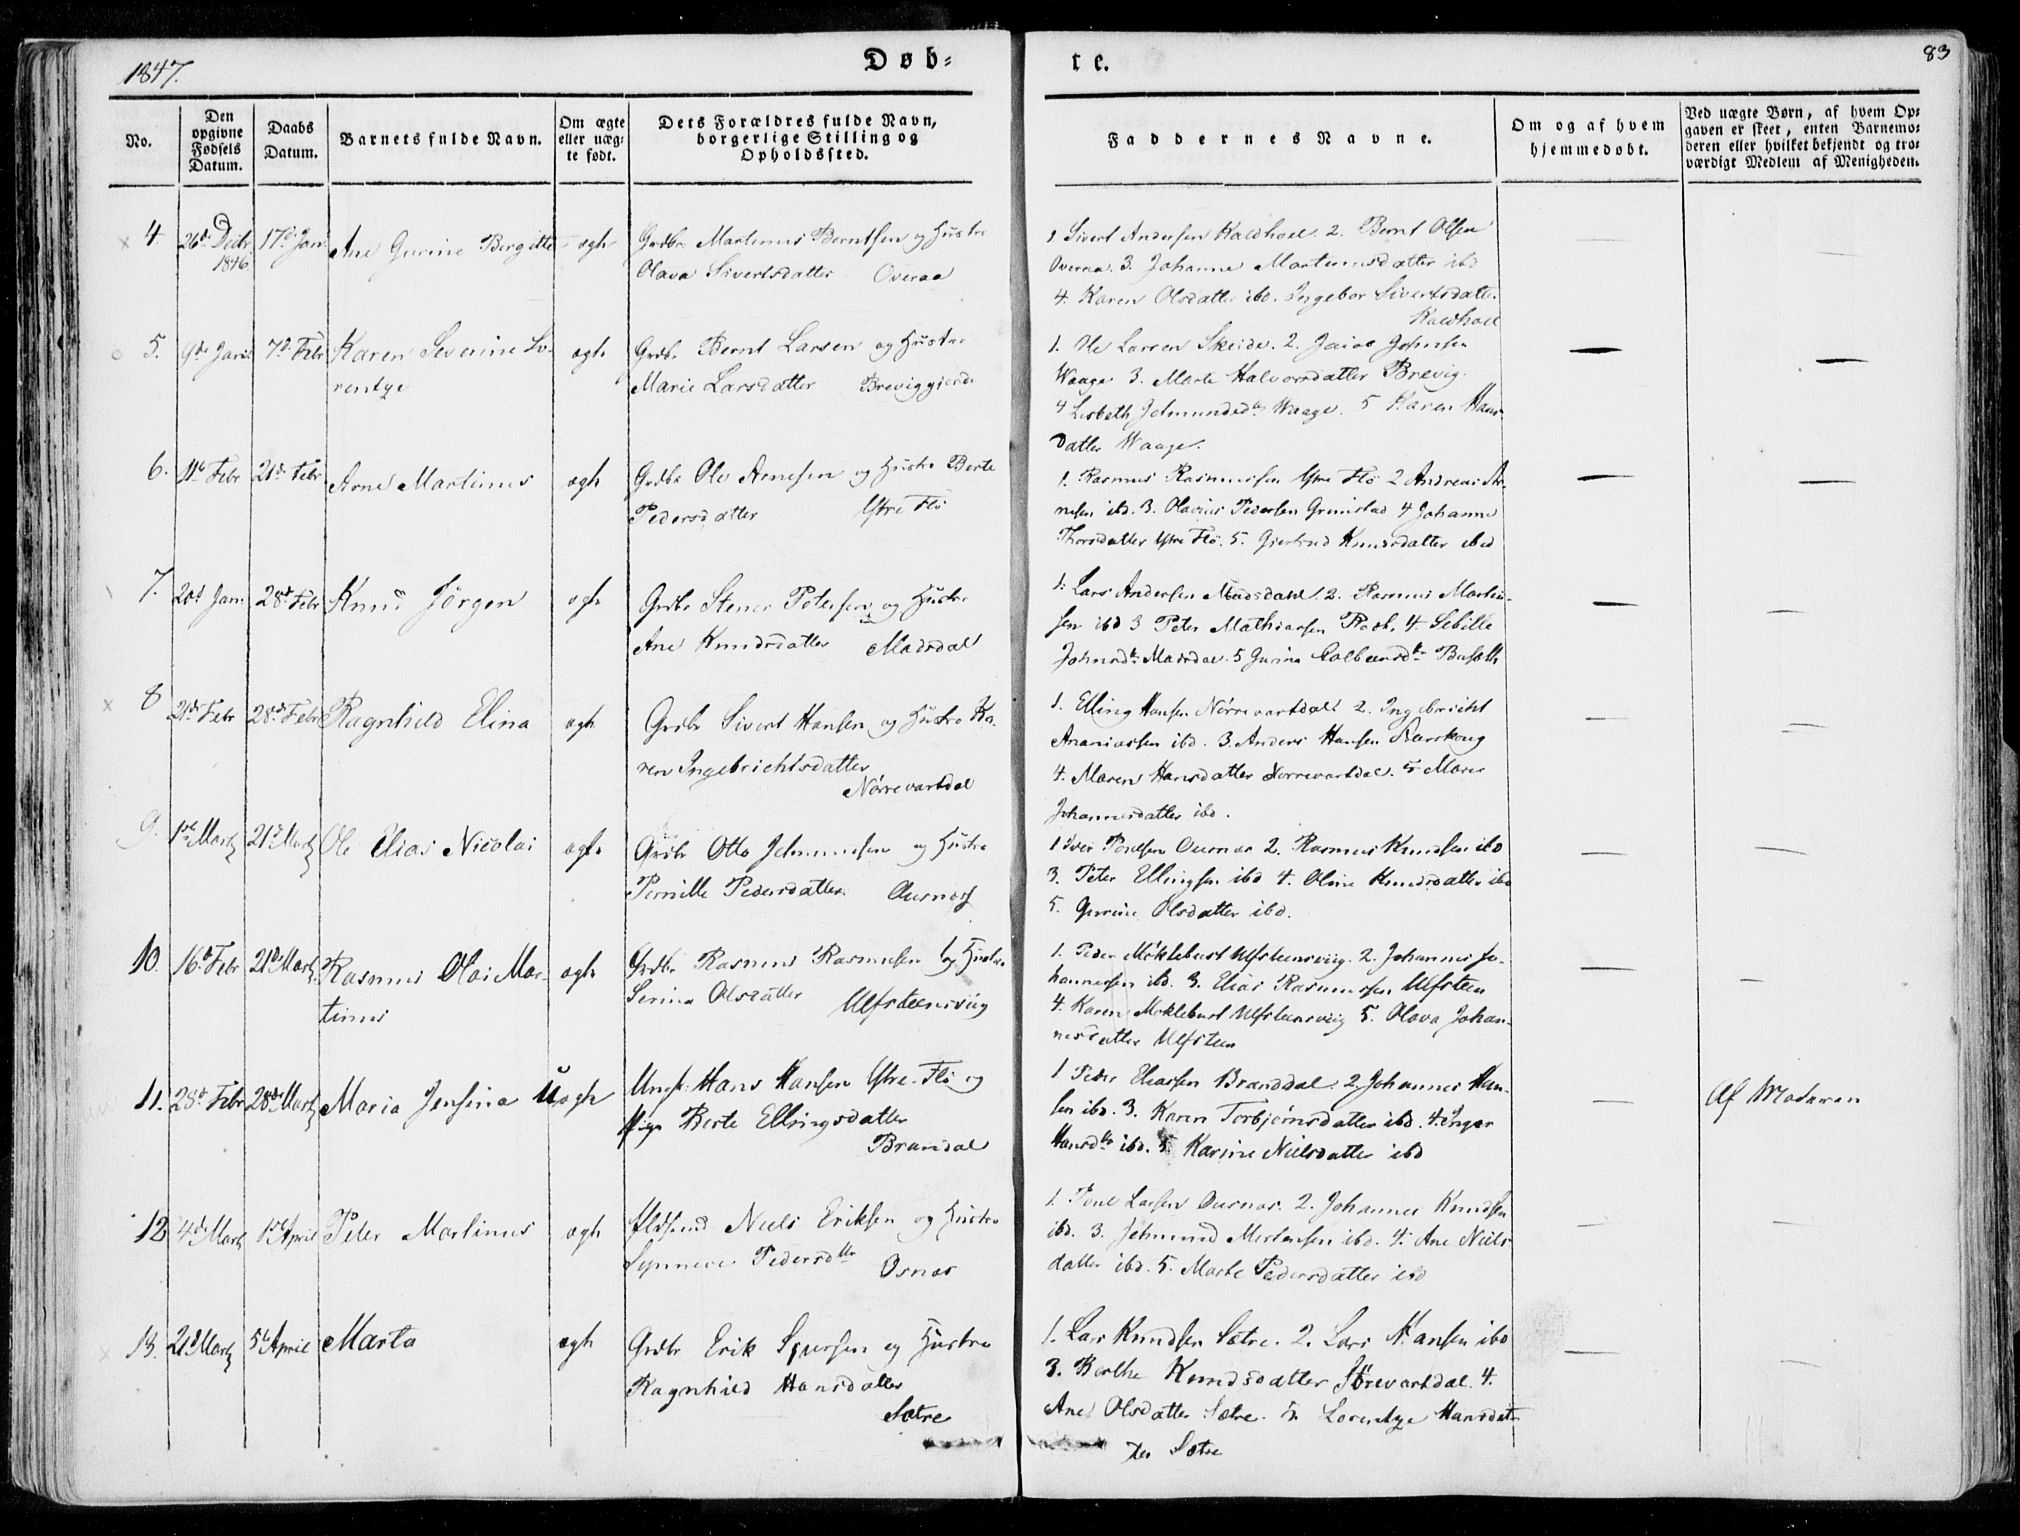 1847.
Døb=
te.
83
No.
Den opgivne Fødsels Datum.
Daabs Datum.
Barnets fulde Navn.
Om ægte eller uæg-te født.
Dets Forældres fulde Navn, borgerlige Stilling og Opholdssted.
Faddernes Navne.
Om og af hvem hjemmedøbt.
Ved uægte Børn, af hvem Op-gaven er skeet, enten Barnemo-deren eller hvilket bekjendt og tro-værdigt Medlem af Menigheden.
4. 26de Decbr 1846 17de Jan Ane Gurine Birgitte ægte
Grdbr Martinus Berntsen og Hustro
Olava Sivertsdatter Overaa
1. Sivert Andersen Kaldhoel. 2. Bernt Olsen
Overaa. 3. Johanne Martinusdatter ibd
4. Karen Olsdatter ibd. Ingebor Sivertsdatter
Kaldhoel
5. 9de Janr 7de Febr Karen Severine Lo-
rentze
ægte
Grdbr Bernt Larsen og Hustro
Marie Larsdatter Breviggjerde
1. Ole Larsen Skeide. 2. Johnsen
Waage 3. Marte Halvorsdatter Brevig.
4 Lisbeth Jetmundsdtr Waage. 5 Karen Hans-
datter Waage.
6. 11te Febr 21de Febr Arne Martinus ægte
Grdbr Ole Arnesen og Hustro Berte
Pedersdatter Ytre Flø
1. Rasmus Rasmussen Ytre Flø 2 Andreas Ar-
nesen ibd. 3. Olavius Pedersen Grimstad 4 Johanne
Thorsdatter Ytre Flø. 5. Giertrud Knudsdatter ibid
7. 20de Jan. 28de Febr Knud Jörgen ægte
Grdbr Stener Petersen og Hustro
Ane Knudsdatter Madsdal
1. Lars Andersen Madsdahl. 2. Rasmus Martin-
sen ibd 3 Peter Mathiassen Rosb. 4. Sebille
Johnsdtr Madsdal. 5 Gurine
8 21de Febr 28de Febr Ragnhild Elina ægte
Grdbr Sivert Hansen og Hustro Ka-
ren Ingebrichtsdatter
Nörrevartdal
1. Elling Hansen Nörrevartdal 2. Ingebricht
Ananiassen ibd. 3. Anders Hansen
4. Maren Hansdatter Nørrevartdal. 5 Maren
Johannesdatter ibd.
9. 1ste Martz 21de Martz Ole Elias Nicolai ægte
Grdbr Otto Jetmundsen og Hustro
Pernille Pedersdatter Ousnes
1 Iver Povelsen Ousnes 2. Rasmus Knudsen ibd
3. Peter Ellingsen ibd 4. Oline Knudsdatter ibd
5. Gurine Olsdatter ibd.
10. 16de Febr 21de Martz Rasmus Olai Mar-
tinus
ægte
Grdbr Rasmus Rasmusen og Hustro
Serina Olsdatter Ulfsteensviig
1. Peder Mökleburst Ulfsteensviig. 2. Johannes Jo-
hannessen ibd. 3. Elias Rasmussen Ulfsteen
4. Karen Mökleburst Ulfsteensviig 5. Olava Johan-
nesdatter Ulfsteen
11. 28de Febr 28de Martz Maria Jensina Uægte
Ungk. Hans Hansen Ytre-Flø og
Pige Berte Ellingsdatter
Brandal
1 Peder Eliassen Branddal. 2. Johannes Han-
sen ibd. 3. Karen Torbjørnsdatter ibd. 4. Inger
Hansdtr ibd. 5. Karine Nielsdatter ibd
Af Moderen
12 4de Martz 1ste April Peter Martinus ægte
Niels Eriksen og Hustro
Synneve Pedersdtr Osnes
1. Poul Larsen Ousnes. 2. Johannes Knudsen
ibd. 3. Jetmund Mortensen ibd. 4. Ane Niels
datter ibd. 5. Marte Pedersdatter ibd
13. 21de Martz 5te April Marta ægte
Grdbr Erik Sjursen og Hustro
Ragnhild Hansdatter
Sætre
1. Lars Knudsen Sætre. 2. Lars Hansen ibd
3. Berthe Knudsdatter Sörevartdal. 4.
Ane Olsdatter Sætre. 5 Lorentze Hansdat-
ter Sætre